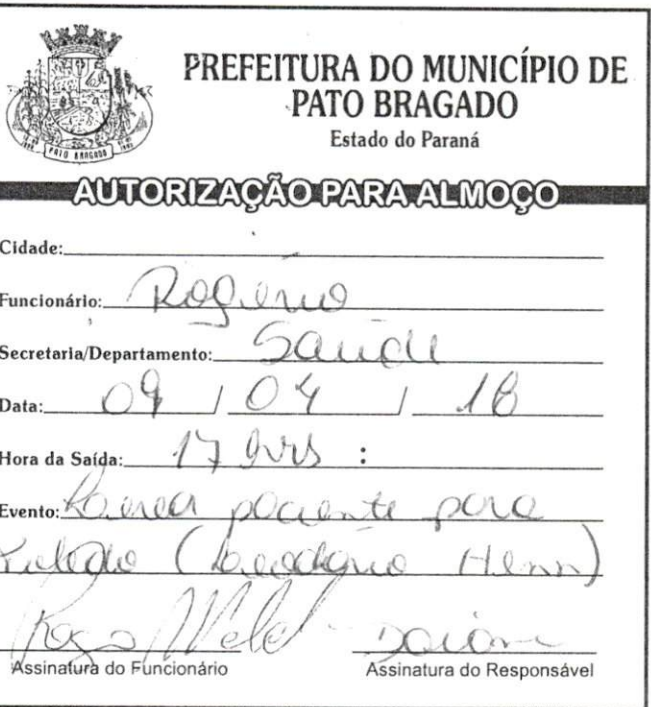 PREFEITURA DO MUNICÍPIO DE
PATO BRAGADO
Estado do Paraná
PATO BRAGADO
AUTORIZAÇÃO PARA ALMOÇO
Cidade:
Funcionário: Rogério
Secretaria/Departamento: Saúde
Data: 09 / 04 / 18
Hora da Saída: 17 hrs :
Evento: paciente para
Toledo ( Henn)
Assinatura do Funcionário Assinatura do Responsável